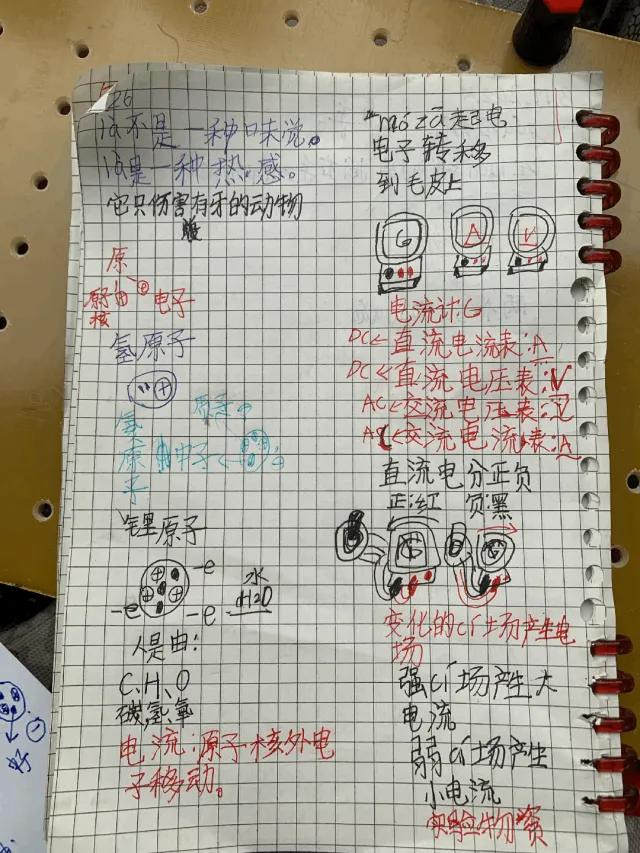 26
là不是一种味觉。
là是一种热感。
它只伤害有牙的动物
原
原子核
电子
氢原子
氦原子
质子
中子
锂原子
-e
-e
-e
水
H2O
人是由:
C、H、O
碳,氢,氧
电流:原子核外电
子移动。
mó zā起电
电子转移
到毛皮上
G
A
V
电流计:G
DC←直流电流表:A
DC←直流电压表:V
AC←交流电压表:V
AC←交流电流表:A
直流电分正负
正:红 负:黑
G
G
变化的cí场产生电
场
强cí场产生大
电流
弱cí场产生
小电流